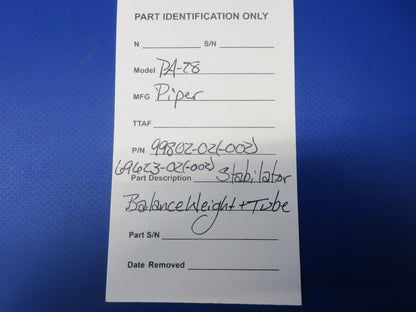 PART IDENTIFICATION ONLY
N ________ S/N ________
Model PA-28
MFG Piper
TTAF ________
P/N 99802-02(-002)
69623-02(-002)
Part Description Stabilator
Balance Weight + Tube
Part S/N ________
Date Removed ________